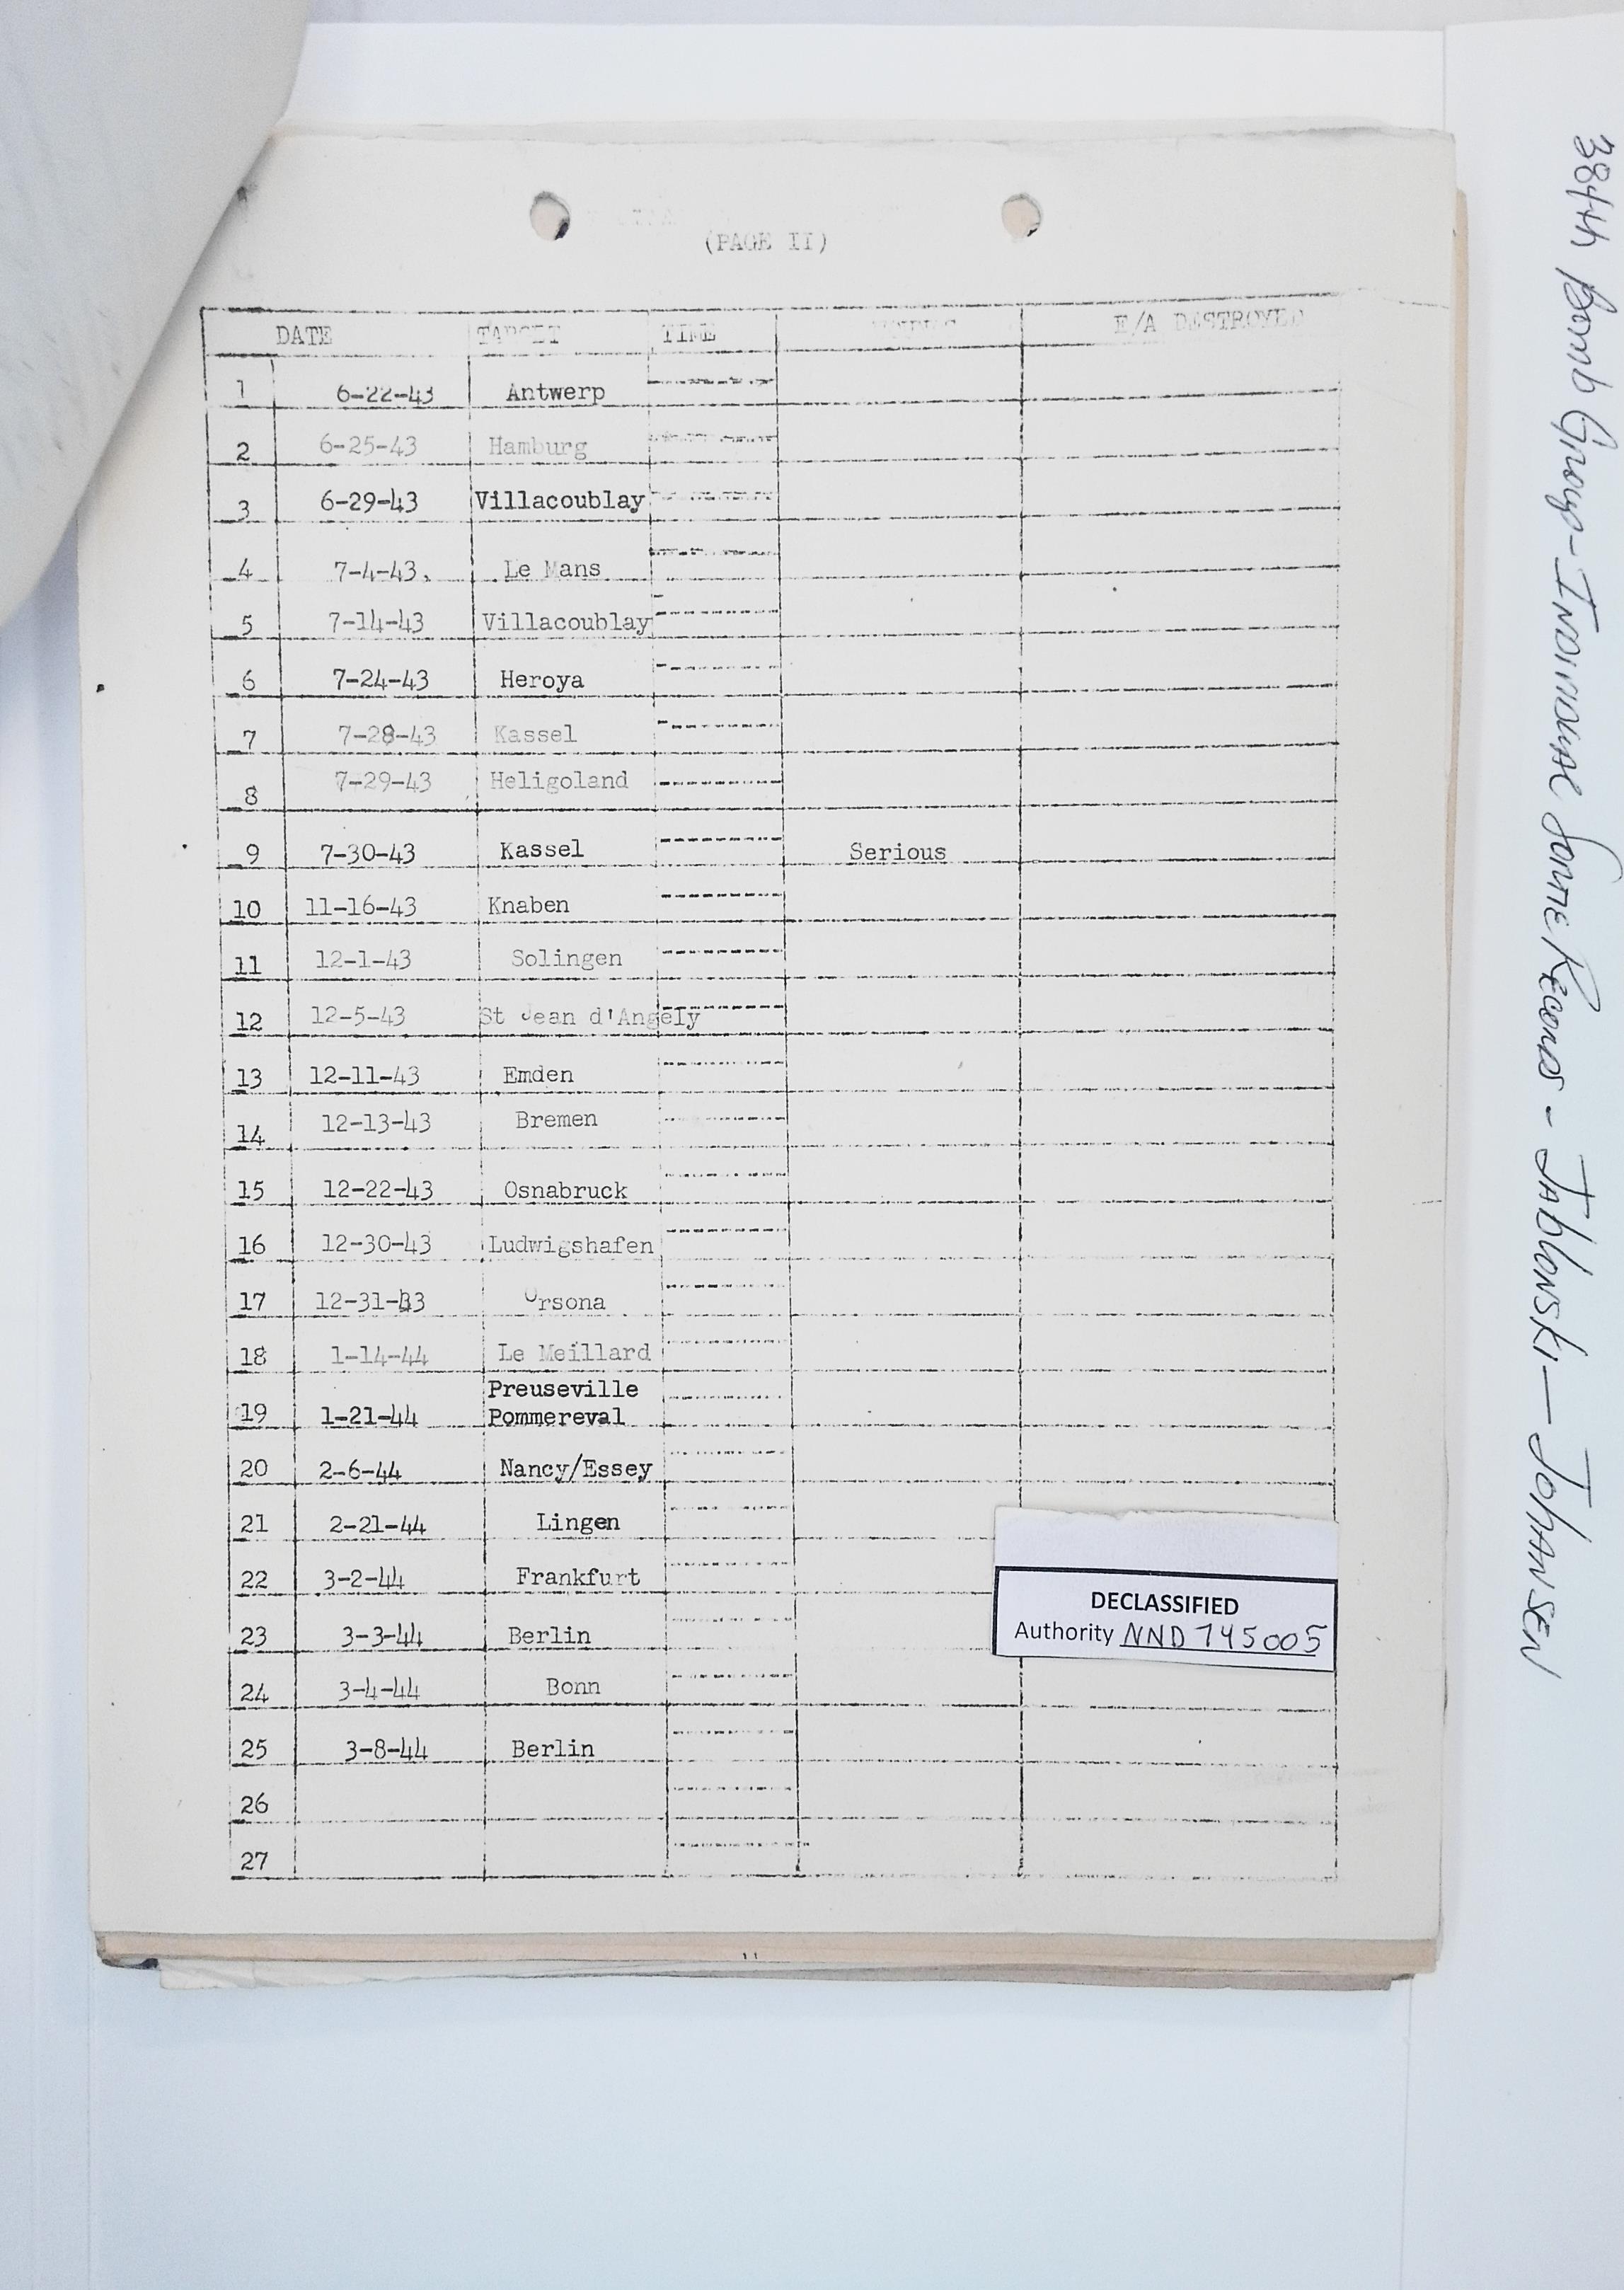 (PAGE II)
DATE TARGET TIME E/A DESTROYED
1 6-22-43 Antwerp
2 6-25-43 Hamburg
3 6-29-43 Villacoublay
4 7-4-43. Le Mans
5 7-14-43 Villacoublay
6 7-24-43 Heroya
7 7-28-43 Kassel
8 7-29-43 Heligoland
9 7-30-43 Kassel Serious
10 11-16-43 Knaben
11 12-1-43 Solingen
12 12-5-43 St Jean d'Angely
13 12-11-43 Emden
14 12-13-43 Bremen
15 12-22-43 Osnabruck
16 12-30-43 Ludwigshafen
17 12-31-43 Orsona
18 1-14-44 Le Meillard
Preuseville
19 1-21-44 Pommereval
20 2-6-44 Nancy/Essey
21 2-21-44 Lingen
22 3-2-44 Frankfurt
23 3-3-44 Berlin
24 3-4-44 Bonn
25 3-8-44 Berlin
26
27
DECLASSIFIED
Authority NND 745005
384th Bomb Group - Individual Sortie Records - Jablonski — Johansen